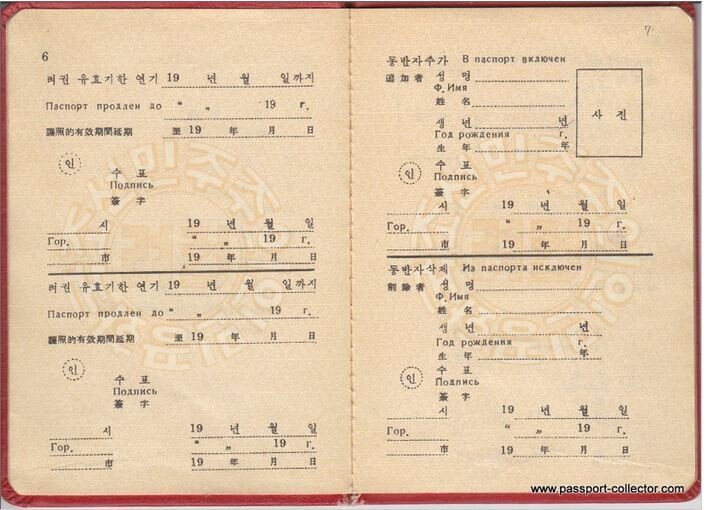 6
려권 유효기한 연기 19 년 월 일까지
Паспорт продлен до “ „ 19 г.
護照的有效期間延期 至 19 年 月 日
인
수 표
Подпись
簽 字
시 19 년 월 일
Гор. “ „ 19 г.
市 19 年 月 日
려권 유효기한 연기 19 년 월 일까지
Паспорт продлен до “ „ 19 г.
護照的有效期間延期 至 19 年 月 日
인
수 표
Подпись
簽 字
시 19 년 월 일
Гор. “ „ 19 г.
市 19 年 月 日
7
동반자추가 В паспорт включен
追加者 성 명
Ф. Имя
姓 名
사 진
생 년 년
Год рождения г.
生 年 年
인
수 표
Подпись
簽 字
시 19 년 월 일
Гор. “ „ 19 г.
市 19 年 月 日
동반자삭제 Из паспорта исключен
削除者 성 명
Ф. Имя
姓 名
생 년 년
Год рождения г.
生 年 年
인
수 표
Подпись
簽 字
시 19 년 월 일
Гор. “ „ 19 г.
市 19 年 月 日
www.passport-collector.com